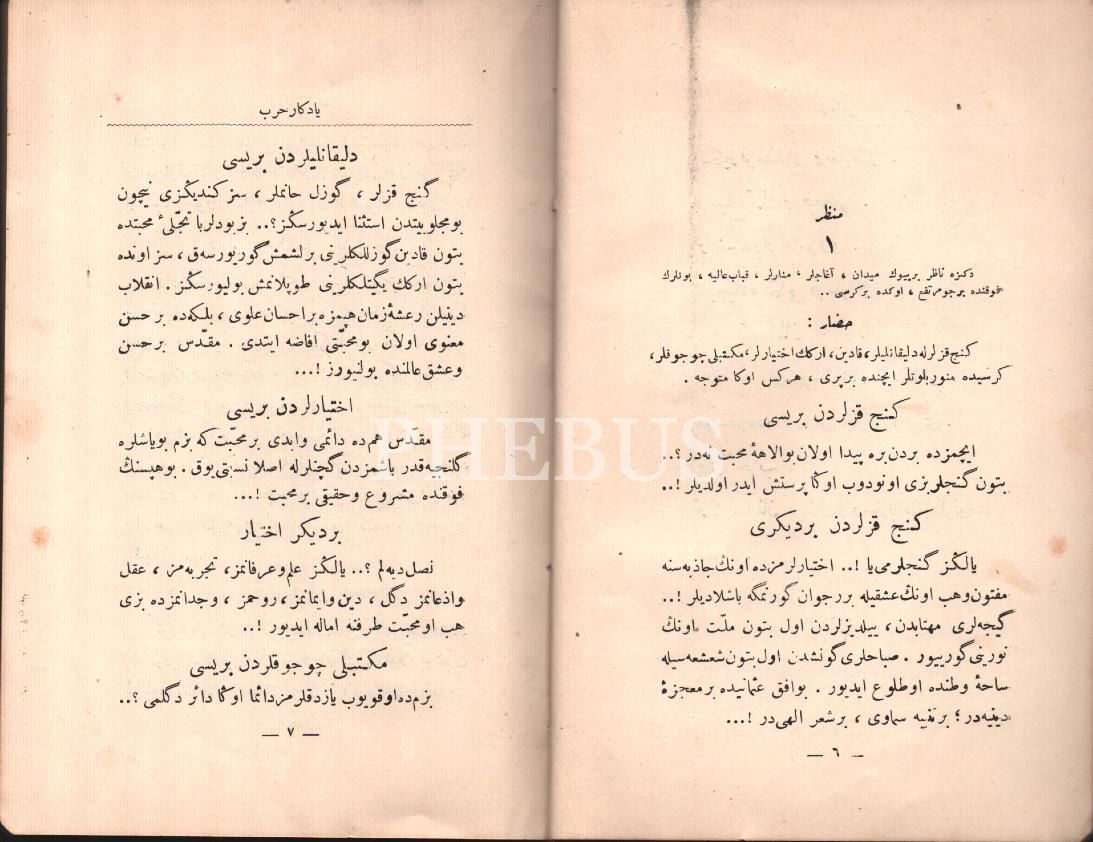 منظر
١
دكزه ناظر بربیوك میدان ، آغاجلر ، منارلر ، قباب عالیه ، بونلرك
فوقنده برجو مرتفع ، اوكده بركرسی ..
حضار :
كنج قزلرله دلیقانلیلر، قادین، اركك اختیارلر، مكتبلی چوجوقلر،
كرسیده منور بلوتلر ایچنده بر پری ، هركس اوكا متوجه .
كنج قزلردن بریسی
ایچمزده بردن بره پیدا اولان بوالاههٔ محبت نه‌در ؟..
بتون گنجلر بزی اونودوب اوكا پرستش ایدر اولدیلر !..
كنج قزلردن بردیكری
یالڭز گنجلرمی یا !.. اختیارلرمزده اونك جاذبه‌سنه
مفتون وهب اونك عشقیله بررجوان گورنمگه باشلادیلر !..
گیجه‌لری مهتابدن ، ییلدیزلردن اول بتون ملّت اونك
نورینی گورییور . صباحلری گونشدن اول بتون شعشعه‌سیله
ساحهٔ وطنده او طلوع ایدیور . بوافق عثمانیده بر معجزهٔ
دینیه‌در ؛ برنفیهٔ سماوی ، برشعر الهی‌در !...
— ٦ —
یادكار حرب
دلیقانلیلردن بریسی
گنج قزلر ، گوزل حانملر ، سز كندیڭزی نیچون
بومجلوبیتدن استثنا ایدیورسڭز؟.. بز بودلربا تجلّیٔ محبتده
بتون قادین گوزللكلرینی برلشمش گوریورسه‌ق ، سز اونده
بتون اركك یگیتلكلرینی طوپلانمش بولیورسڭز . انقلاب
دینیلن رعشهٔ زمان هپمزه براحسان علوی ، بلكه‌ده بر حسن
معنوی اولان بومحبّتی افاضه ایتدی . مقدّس برحسن
وعشق عالمنده بولنیورز !...
اختیارلردن بریسی
مقدّس هم‌ده دائمی وابدی برمحبّت كه بزم بویاشلره
گلنجیه قدر باشمزدن گچنلرله اصلا نسبتی یوق . بوهپسنك
فوقنده مشروع وحقیقی برمحبت !...
بردیكر اختیار
نصل دیه‌لم ؟.. یالڭز علم وعرفانمز ، تجربه‌مز ، عقل
واذعانمز دگل ، دین وایمانمز ، روحمز ، وجدانمزده بزی
هب اومحبّت طرفنه اماله ایدیور !..
مكتبلی چوجوقلردن بریسی
بزم‌ده اوقویوب یازدقلرمز دائما اوڭا دائر دگلمی ؟..
— ٧ —
PHEBUS